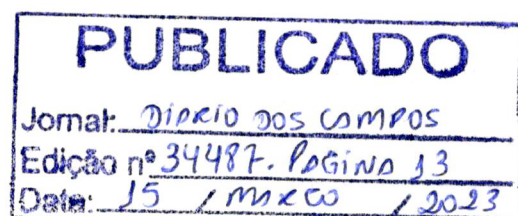 PUBLICADO
Jornal: DIÁRIO DOS CAMPOS
Edição nº 34487. PÁGINA 13
Data: 15 / MARÇO / 2023